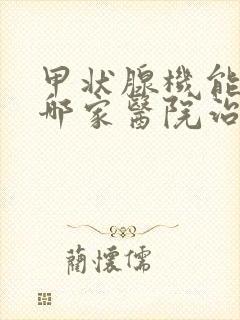 甲状腺機能
哪家醫院治
蔺懷儒